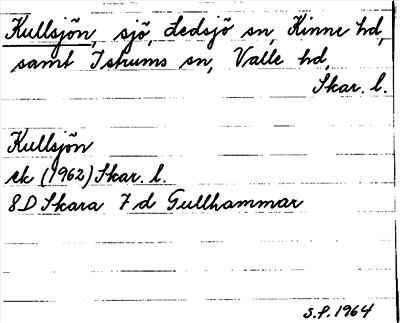 Kullsjön, sjö, Ledsjö sn, Kinne hd,
samt Istrums sn, Valle hd,
Skar. l.
Kullsjön
rk (1962) Skar. l.
8D Skara 7d Gullhammar
S.P. 1964